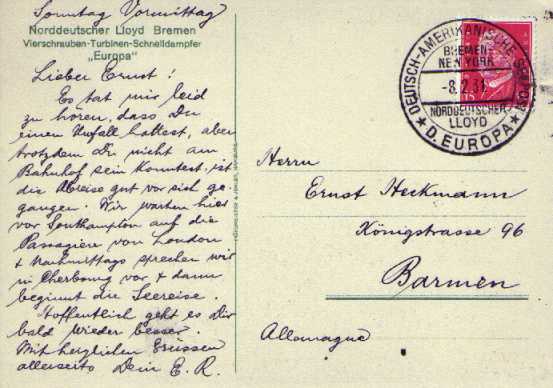 Sonntag Vormittag
Norddeutscher Lloyd Bremen
Vierschrauben-Turbinen-Schnelldampfer
„Europa"
Lieber Ernst!
Es tat mir leid
zu hören, dass Du
einen Unfall hattest, aber
trotzdem Du nicht am
Bahnhof sein konntest, ist
die Abreise gut vor sich ge-
gangen. Wir warten hier
vor Southampton auf die
Passagiere von London
+ Nachmittags sprechen wir
in Cherbourg vor + dann
beginnt die Seereise.
Hoffentlich geht es Dir
bald wieder besser.
Mit herzlichen Grüssen
allerseits Dein E. R.
DEUTSCH-AMERIKANISCHE SEEPOST
BREMEN-
NEW YORK
-8.2.31
NORDDEUTSCHER
LLOYD
★ D. EUROPA ★
15
Herrn
Ernst Heckmann
Königstrasse 96
Barmen
Allemagne